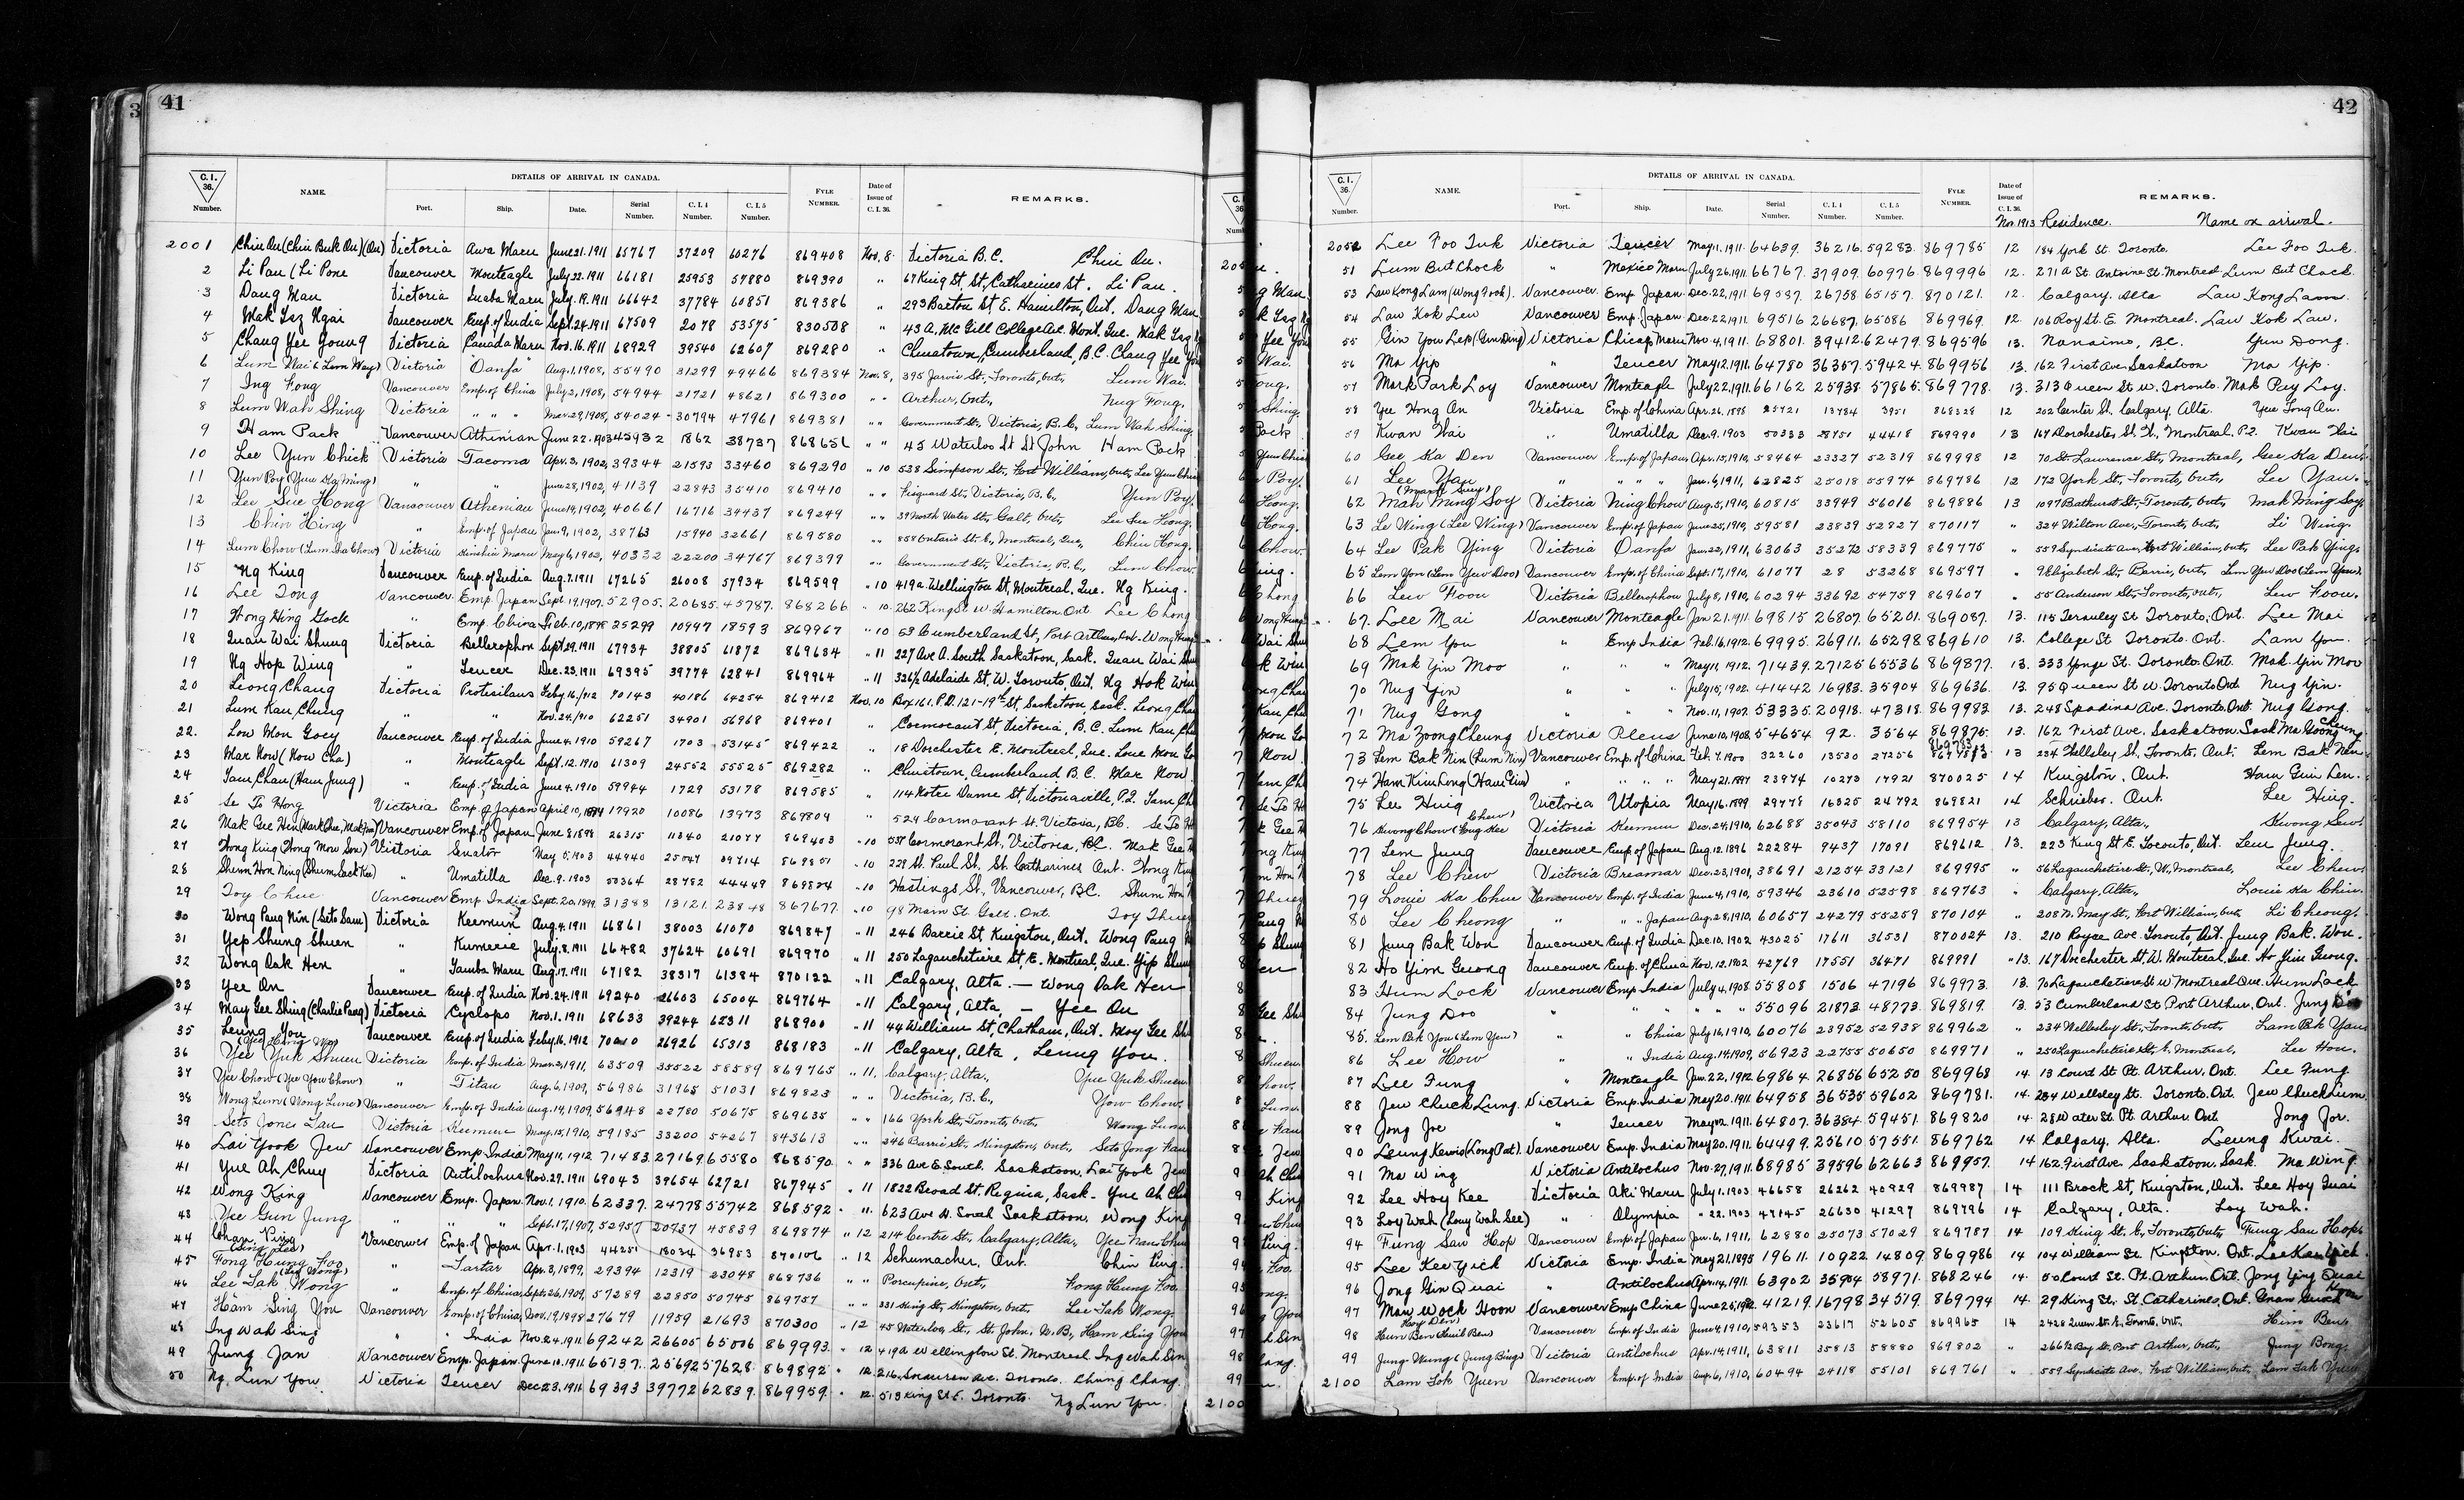 41
C. I. 36. Number.
NAME.
DETAILS OF ARRIVAL IN CANADA.
Port. Ship. Date. Serial Number. C. I. 4 Number. C. I. 5 Number.
FYLE NUMBER.
Date of Issue of C. I. 36.
REMARKS.
2001 Chiu On (Chiu Buk On) (On) Victoria Awa Maru June 21. 1911 65767 37209 60276 869408 Nov. 8. Victoria B.C. Chiu On.
2 Li Pau (Li Pone Vancouver Monteagle July 22. 1911 66181 25953 57880 869390 " 67 King St, St. Catharines St. Li Pau.
3 Dang Man Victoria Inaba Maru July. 19. 1911 66642 37784 60851 869386 " 293 Barton St. E. Hamilton, Ont. Dang Man
4 Mak Tsz Ngai Vancouver Emp. of India Sept. 24. 1911 67509 2078 53575 830508 " 43 A. McGill College Ave. Mont. Que. Mak Tsz
5 Chang Yee Young Victoria Canada Maru Nov. 16. 1911 68929 39540 62607 869280 " Chinatown, Cumberland, B.C. Chang Yee
6 Lum Wai (Lem Way) Victoria Oanfa Aug. 1, 1908, 55490 31299 49466 869384 Nov. 8, 395 Jarvis St., Toronto, Ont., Lum Wai.
7 Ing Fong Vancouver Emp. of China July 2, 1908, 54944 21721 48621 869300 " " Arthur, Ont., Nug Foug.
8 Lum Wah Shing Victoria " " " Mar. 29, 1908, 54024 30794 47961 869381 " " Government St., Victoria, B.C., Lum Wah Shing.
9 Ham Pack Vancouver Athenian June 22. 1903 45932 1862 38737 868651 " " 45 Waterloo St St John Ham Pock
10 Lee Yun Chick Victoria Tacoma Apr. 3, 1902, 39344 21593 33460 869290 " 10 538 Simpson St., Fort William, Ont., Lee Yun
11 Yun Poy (Yuu Ka Ming) " " June 28, 1902, 41139 22843 35410 869410 " " Fisguard St., Victoria, B.C., Yun Poy.
12 Lee Sue Hong Vancouver Athenian June 14, 1902, 40661 16716 34437 869249 " " 39 North Water St., Galt, Ont., Lee Sue Hong.
13 Chin Hing " Emp. of Japan Jan. 9, 1902, 38763 15940 32661 869580 " " 858 Ontario St. E., Montreal, Que., Chin Hong.
14 Lum Chow (Lum Da Chow) Victoria Kinshiu Maru May 6, 1902, 40332 22200 34767 869399 " " Government St., Victoria, B.C., Lum Chow.
15 Ng King Vancouver Emp. of India Aug. 7. 1911 67265 26008 57934 869599 " 10 419a. Wellington St, Montreal, Que. Ng King.
16 Lee Tong Vancouver. Emp. Japan Sept. 19, 1907. 52905. 20685. 45787. 868266 " 10. 262 King St W. Hamilton Ont Lee Chong
17 Hong Hing Gock " Emp. China Feb. 10, 1898 25299 10947 18593 869967 " 10 53 Cumberland St, Port Arthur, Ont. Wong
18 Quan Wai Shung Victoria Bellerophon Sept. 29. 1911 67934 38805 61872 869634 " 11 227 Ave A. South Saskatoon, Sask. Quan Wai
19 Ng Hop Wing " Teucer Dec. 23. 1911 69395 39774 62841 869964 " 11 326½ Adelaide St. W. Toronto, Ont. Ng Hok
20 Leong Chang Victoria Protesilaus Feby. 16./12 70143 40186 64254 869412 Nov. 10 Box 161. P.O. 121-19th St. Saskatoon, Sask. Leong
21 Lum Kau Chung " " Nov. 24. 1910 62251 34901 56968 869401 " Cormorant St, Victoria, B.C. Lum Kau
22. Low Mon Goey Vancouver Emp. of India June 4. 1910 59267 1703 53145 869422 " 18 Dorchester E. Montreal, Que. Loue Mon
23 Mar How (How Cha) " Monteagle Sept. 12. 1910 61309 24552 55525 869282 " Chinatown, Cumberland B.C. Mar How
24 Tam Chan (Ham Jung) " Emp. of India June 4. 1910 59944 1729 53178 869585 " 114 Notre Dame St, Victoriaville, P.Q. Tam
25 Se To Hong Victoria Emp. of Japan April 10, 1894 17920 10086 13973 869809 " 529 Cormorant St. Victoria, BC. Se To
26 Mak Gee Hin (Mark Chee, Mak Him) Vancouver Emp. of Japan June 8. 1898 26315 11340 21077 869403 " 10 557 Cormorant St., Victoria, B.C. Mak Gee
27 Hong King (Hong Mow Son) Victoria Senator May 5. 1903 44940 25047 39714 869801 " 10 229 St. Paul St., St. Catharines Ont. Hong
28 Shum Hon Ning (Shum Sack Kee) " Umatilla Dec. 9. 1903 50364 28782 44449 869824 " 10 Hastings St., Vancouver, B.C. Shum Hon
29 Toy Chue Vancouver Emp India Sept. 20. 1899. 31388 13121 23848 867677 " 10 98 Main St. Galt. Ont. Toy
30 Wong Pang Nin (Seto Sam) Victoria Keemun Aug. 4. 1911 66861 38003 61070 869847 " 11 246 Barrie St, Kingston, Ont. Wong Pang
31 Yep Shung Shuen " Kumeric July. 8. 1911 66482 37624 60691 869970 " 11 250 Lagauchetiere St, E. Montreal, Que. Yip
32 Wong Dak Hen " Tamba Maru Aug. 17. 1911 67182 38317 61384 870122 " 11 Calgary, Alta. — Wong Dak Hen
33 Yee On Vancouver Emp. of India Nov. 24. 1911 69240 26603 65004 869764 " 11 Calgary, Alta. — Yee On
34 May Gee Shing (Charlie Pang) Victoria Cyclops Nov. 1. 1911 68633 39244 62311 868900 " 11 44 William St, Chatham, Ont. Moy Gee
35 Leung You Vancouver Emp. of India Feby. 16. 1912 70010 26926 65313 868183 " 11 Calgary, Alta. Leung You.
36 Yee Yuk Shuen Victoria Emp. of India Mar. 2, 1911, 63509 35522 58589 869765 " 11. Calgary, Alta., Yue Yuk Shuen.
37 Yee Chow (Yee Yow Chow) " Titan Aug. 6, 1909, 56986 31965 51031 869823 " " Victoria, B.C., Yow Chow.
38 Wong Lum (Wong Lune) Vancouver Emp. of India Aug. 14, 1909, 56948 22780 50675 869635 " " 166 York St., Toronto, Ont., Wong Lum.
39 Seto Jones Tau Victoria Keemun May. 15, 1910, 59185 33200 54267 843613 " " 246 Barrie St., Kingston, Ont., Seto Jong
40 Lai Yook Jew Vancouver Emp. India May 11, 1912 71483. 27169. 65580 868590. " " 336 Ave E. South. Saskatoon. Lai Yook Jew
41 Yue Ah Chuy Victoria Antilochus Nov. 27. 1911 69043 39654 62721 867945 " 11 1822 Broad St. Regina, Sask - Yue Ah
42 Wong King Vancouver Emp. Japan. Nov. 1. 1910. 62337. 24778 55742 868592 " 11. 623 Ave H. South Saskatoon. Wong King
43 Yee Gun Jung " " " Sept. 17, 1907, 52957 20737 45839 869874 " 12 214 Centre St., Calgary, Alta.,
44 Chan Ping Vancouver Emp. of Japan Apr. 1. 1903 44251 18034 36953 870106 " 12 Schumacher, Ont. Chin Ping.
45 Fong Hung Foo " Tartar Apr. 3, 1899, 29394 12319 23048 868736 " " Porcupine, Ont., Fong Hung Foo.
46 Lee Tak Wong " Emp. of China, Sept. 26, 1909, 57289 22850 50745 869757 " " 331 King St., Kingston, Ont., Lee Tak Wong.
47 Ham Sing You Vancouver Emp. of China, Nov. 19, 1898 27679 11959 21693 870300 " 12 45 Waterloo St., St. John, N.B., Ham Sing You
48 Ing Wah Sing " " India Nov. 24. 1911 69242 26605 65006 869993. " 12 419A Wellington St. Montreal. Ing Wah
49 Jung Jan Vancouver Emp. Japan. June 10. 1911 65137. 25692 57628 869892 " 12. 216 Sorauren Ave. Toronto. Chung Chang.
50 Ng Lun You Victoria Teucer Dec 23. 1911 69393 39772 62839. 869959. " 12. 513 King St E. Toronto. Ng Lun You.
42
C. I. 36. Number.
NAME.
DETAILS OF ARRIVAL IN CANADA.
Port. Ship. Date. Serial Number. C. I. 4 Number. C. I. 5 Number.
FYLE NUMBER.
Date of Issue of C. I. 36.
REMARKS.
Nov 1913 Residence. Name on arrival.
2052 Lee Foo Tuk Victoria Teucer May 1, 1911. 64639. 36216. 59283. 869785 12 184 York St. Toronto. Lee Foo Tuk.
51 Lum But Chock " Mexico Maru July 26, 1911. 66767. 37909. 60976. 869996 12. 271 A St. Antoine St. Montreal Lum But Chock.
53 Law Kong Lam (Wong Fook). Vancouver. Emp. Japan. Dec. 22, 1911 69587. 26758 65157. 870121. 12. Calgary. Alta Law Kong Lam.
54 Law Kok Lew Vancouver Emp. Japan Dec. 22, 1911. 69516 26687. 65086 869969. 12. 106 Roy St. E. Montreal. Law Kok Law.
55 Gin You Lep (Gin Ding) Victoria Chicago Maru Nov 4, 1911. 68801. 39412. 62479. 869596 13. Nanaimo, B.C. Yun Dong.
56 Ma Yip " Teucer May 12, 1911. 64780 36357. 59424. 869956 13. 162 First Ave. Saskatoon Ma Yip.
57 Mark Park Loy Vancouver Monteagle July 22, 1911. 66162 25938 57865. 869778. 13. 313 Queen St W. Toronto. Mak Pay Loy.
58 Yee Hong On Victoria Emp. of China Apr. 26. 1898 25721 13784 3951 868328 12 202 Center St. Calgary, Alta. Yee Tong On.
59 Kwan Hai " Umatilla Dec. 9. 1903 50333 28751 44418 869990 13 167 Dorchester St. W., Montreal, P.Q. Kwan Hai
60 Gee Ka Den Vancouver Emp. of Japan Apr. 15, 1910, 58464 23327 52319 869998 12 70 St. Lawrence St., Montreal, Gee Ka Den.
61 Lee Yan " " " " Jan. 6, 1911, 62825 25018 55974 869786 12 172 York St., Toronto, Ont., Lee Yau.
62 Mah Ming Soy Victoria Ning Chow Aug. 5, 1910, 60815 33949 56016 869886 13 1097 Bathurst St., Toronto, Ont., Mak Ming Soy
63 Le Wing (Lee Wing) Vancouver Emp. of Japan June 25, 1910, 59581 23839 52827 870117 " 324 Wilton Ave., Toronto, Ont., Li Wing.
64 Lee Pak Ying Victoria Oanfa Jan. 22, 1911, 63063 35272 58339 869775 " 559 Syndicate Ave., Fort William, Ont., Lee Pak Ying.
65 Lem Yon (Lem Yew Doo) Vancouver Emp. of China Sept. 17, 1910, 61077 28 53268 869597 " 9 Elizabeth St., Barrie, Ont., Lem Yew Doo (Lem Yow).
66 Lew Foon Victoria Bellerophon July 8, 1910, 60294 33692 54759 869607 " 55 Anderson St., Toronto, Ont., Lew Foon.
67. Lee Mai Vancouver Monteagle Jan 21. 1911 69815 26807. 65201. 869087. 13. 115 Teraulay St Toronto, Ont. Lee Mai
68 Lem You " Emp India Feb. 16, 1912. 69995. 26911. 65298 869610 13. College St Toronto. Ont. Lam You.
69 Mak Yin Moo " " " May 11, 1912. 71439. 27125 65536 869877. 13. 333 Yonge St. Toronto. Ont. Mak Yin Mov
70 Nug Yin " " " July 15, 1902. 41442 16983. 35904 869636. 13. 95 Queen St W. Toronto Ont. Nug Yin.
71 Nug Gong " " " Nov. 11, 1907. 53335. 20918. 47318. 869983. 13. 248 Spadina Ave. Toronto. Ont. Nug Gong.
72 Ma Zoong Cheung Victoria Pleus June 10, 1908. 54654 92. 3564 869875. 13. 162 First Ave. Saskatoon. Sask Ma Goong Cheung.
73 Lem Bak Nin (Lum Nin) Vancouver Emp. of China Feb. 7. 1900 32260 13530 27256 869783 13 234 Wellsley St., Toronto, Ont. Lem Bak Nen.
74 Ham Kim Long (Ham Gim) " " " " May 21. 1897 23974 10273 17921 870025 14 Kingston, Ont. Ham Guin Len.
75 Lee Hing Victoria Utopia May 16. 1899 29778 16325 24792 869821 14 Schrieber. Ont. Lee Hing.
76 Kwong Chow (Kong Kee Chew) Victoria Keemun Dec. 24, 1910, 62688 35043 58110 869954 13 Calgary, Alta., Kwong Sew.
77 Lem Jung Vancouver Emp. of Japan Aug. 12. 1896 22284 9437 17091 869612 13. 223 King St E. Toronto, Ont. Lem Jung.
78 Lee Chew Victoria Breamar Dec. 23, 1901, 38691 21254 33121 869995 " 56 Lagauchetiere St., W., Montreal, Lee Chew.
79 Louie Ka Chue Vancouver Emp. of India June 4, 1910, 59346 23610 52598 869763 " Calgary, Alta., Louie Ka Chiu.
80 Lee Cheong " " Japan Aug. 28, 1910, 60657 24279 55259 870104 " 208 N. May St., Fort William, Ont., Li Cheong.
81 Jung Bak Won Vancouver Emp. of India Dec. 10. 1902 43025 17611 36531 870024 13. 210 Royce Ave. Toronto, Ont. Jung Bak. Won.
82 Ho Yim Guong Vancouver Emp. of China Nov. 12. 1902 42769 17551 36471 869991 " 13. 167 Dorchester St, W. Montreal, Que. Ho Yim Guong.
83 Hum Lock Vancouver Emp. India July 4, 1908 55808 1506 47196 869973. 13. 70 Lagauchetiere St W Montreal Que. Hum Lock
84 Jung Doo " " " " " 55096 21873. 48773. 869819. 13. 53 Cumberland St Port Arthur, Ont. Jung
85. Lem Pak You (Lem Yem) " " China July 16, 1910, 60076 23952 52938 869962 " 234 Wellesley St., Toronto, Ont., Lam Pak Yau
86 Lee How " " India Aug. 14, 1909, 56923 22755 50650 869971 " 250 Lagauchetiere St., E. Montreal, Lee Hou.
87 Lee Fung " Monteagle Jan. 22, 1912. 69864. 26856 65250 869968 14. 13 Court St Pt. Arthur. Ont. Lee Fung
88 Jew Chuck Lung. Victoria Emp. India May 20. 1911 64958 36535 59602 869781. 14. 234 Wellsley St. Toronto. Ont. Jew Chuck Lum.
89 Jong Joe " Teucer May 12, 1911. 64807. 36384. 59451. 869820 14. 28 Water St. Pt. Arthur Ont Jong Jor.
90 Leung Kewis (Long Pat). Vancouver Emp. India May 20. 1911. 64499. 25610 57551. 869762 14 Calgary. Alta. Leung Kwai.
91 Ma Wing Victoria Antilochus Nov. 27, 1911. 68985 39596 62663 869957. 14 162 First Ave. Saskatoon, Sask. Ma Wing.
92 Lee Hoy Kee Victoria Aki Maru July 1. 1903 46658 26262 40929 869987 14 111 Brock St, Kingston, Ont. Lee Hoy Quai
93 Loy Wah (Louy Wah See) " Olympia " 22. 1903 47145 26630 41297 869796 14 Calgary, Alta. Loy Wah.
94 Fung Saw Hop Vancouver Emp. of Japan Jan. 6, 1911, 62880 25073 57029 869787 14 109 King St., E., Toronto, Ont., Fung Sau Hop.
95 Lee Kee Yick Victoria Emp. India May 21. 1895 19611. 10922 14809. 869986 14 104 William St. Kingston. Ont.
96 Jong Gin Quai " Antilochus Apr. 14, 1911. 63902 35904 58971. 868246 14. 50 Court St. Pt. Arthur. Ont. Jong Ying Quai
97 May Wock Hoon Vancouver Emp China June 25, 1902. 41219. 16798 34519. 869794 14. 29 King St. St. Catharines, Ont.
98 Hum Ben (Huil Ben) Vancouver Emp. of India June 4, 1910, 59353 23617 52605 869965 14 242 Queen St. E., Toronto, Ont. Him Ben.
99 Jung Wung (Jung Bing) Victoria Antilochus Apr. 14, 1911, 63811 35813 58880 869802 " 266½ Bay St., Port Arthur, Ont., Jung Bong.
2100 Lam Tok Yuen Vancouver Emp. of India Aug. 6, 1910, 60494 24118 55101 869761 " 559 Syndicate Ave. Fort William, Ont., Lam Tak Yuen